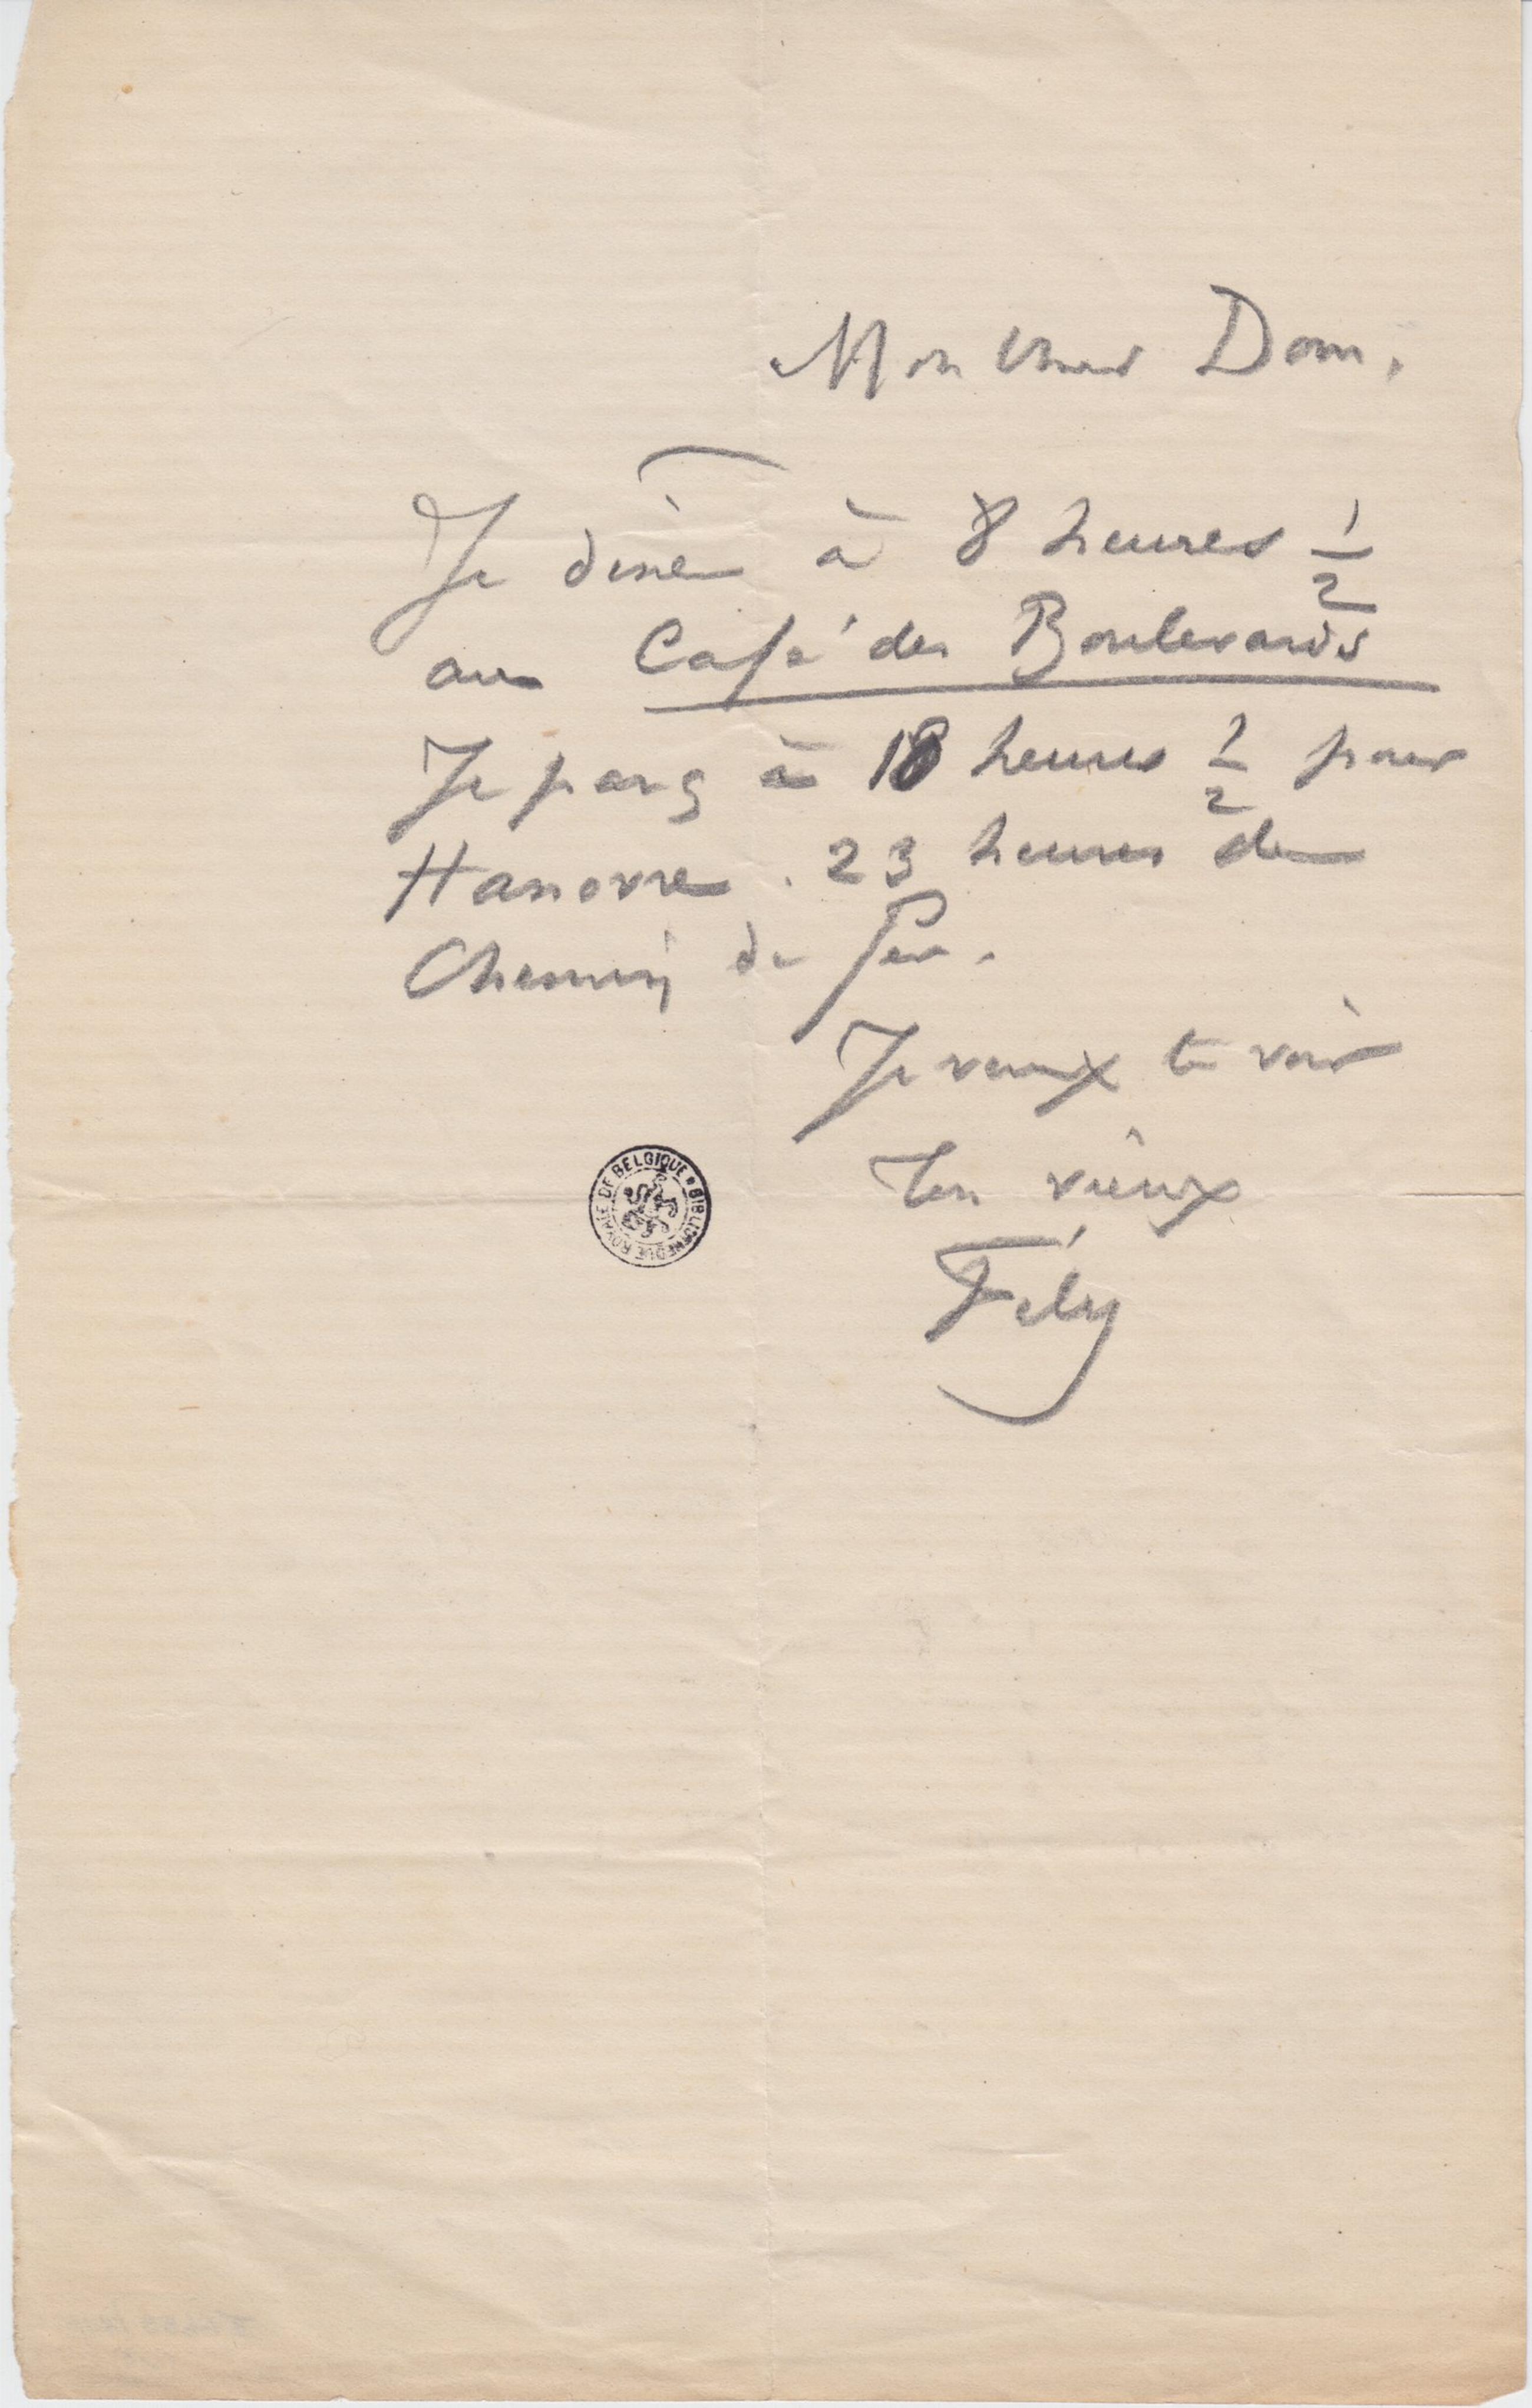 Mon Cher Dom.
Je dine à 8 heures 1/2
au Café des Boulevards
Je pars à heures 1/2 pour
Hanovre. 23 heures de
Chemin de fer.
Je veux te voir
Ton vieux
Fély
BIBLIOTHEQUE ROYALE DE BELGIQUE